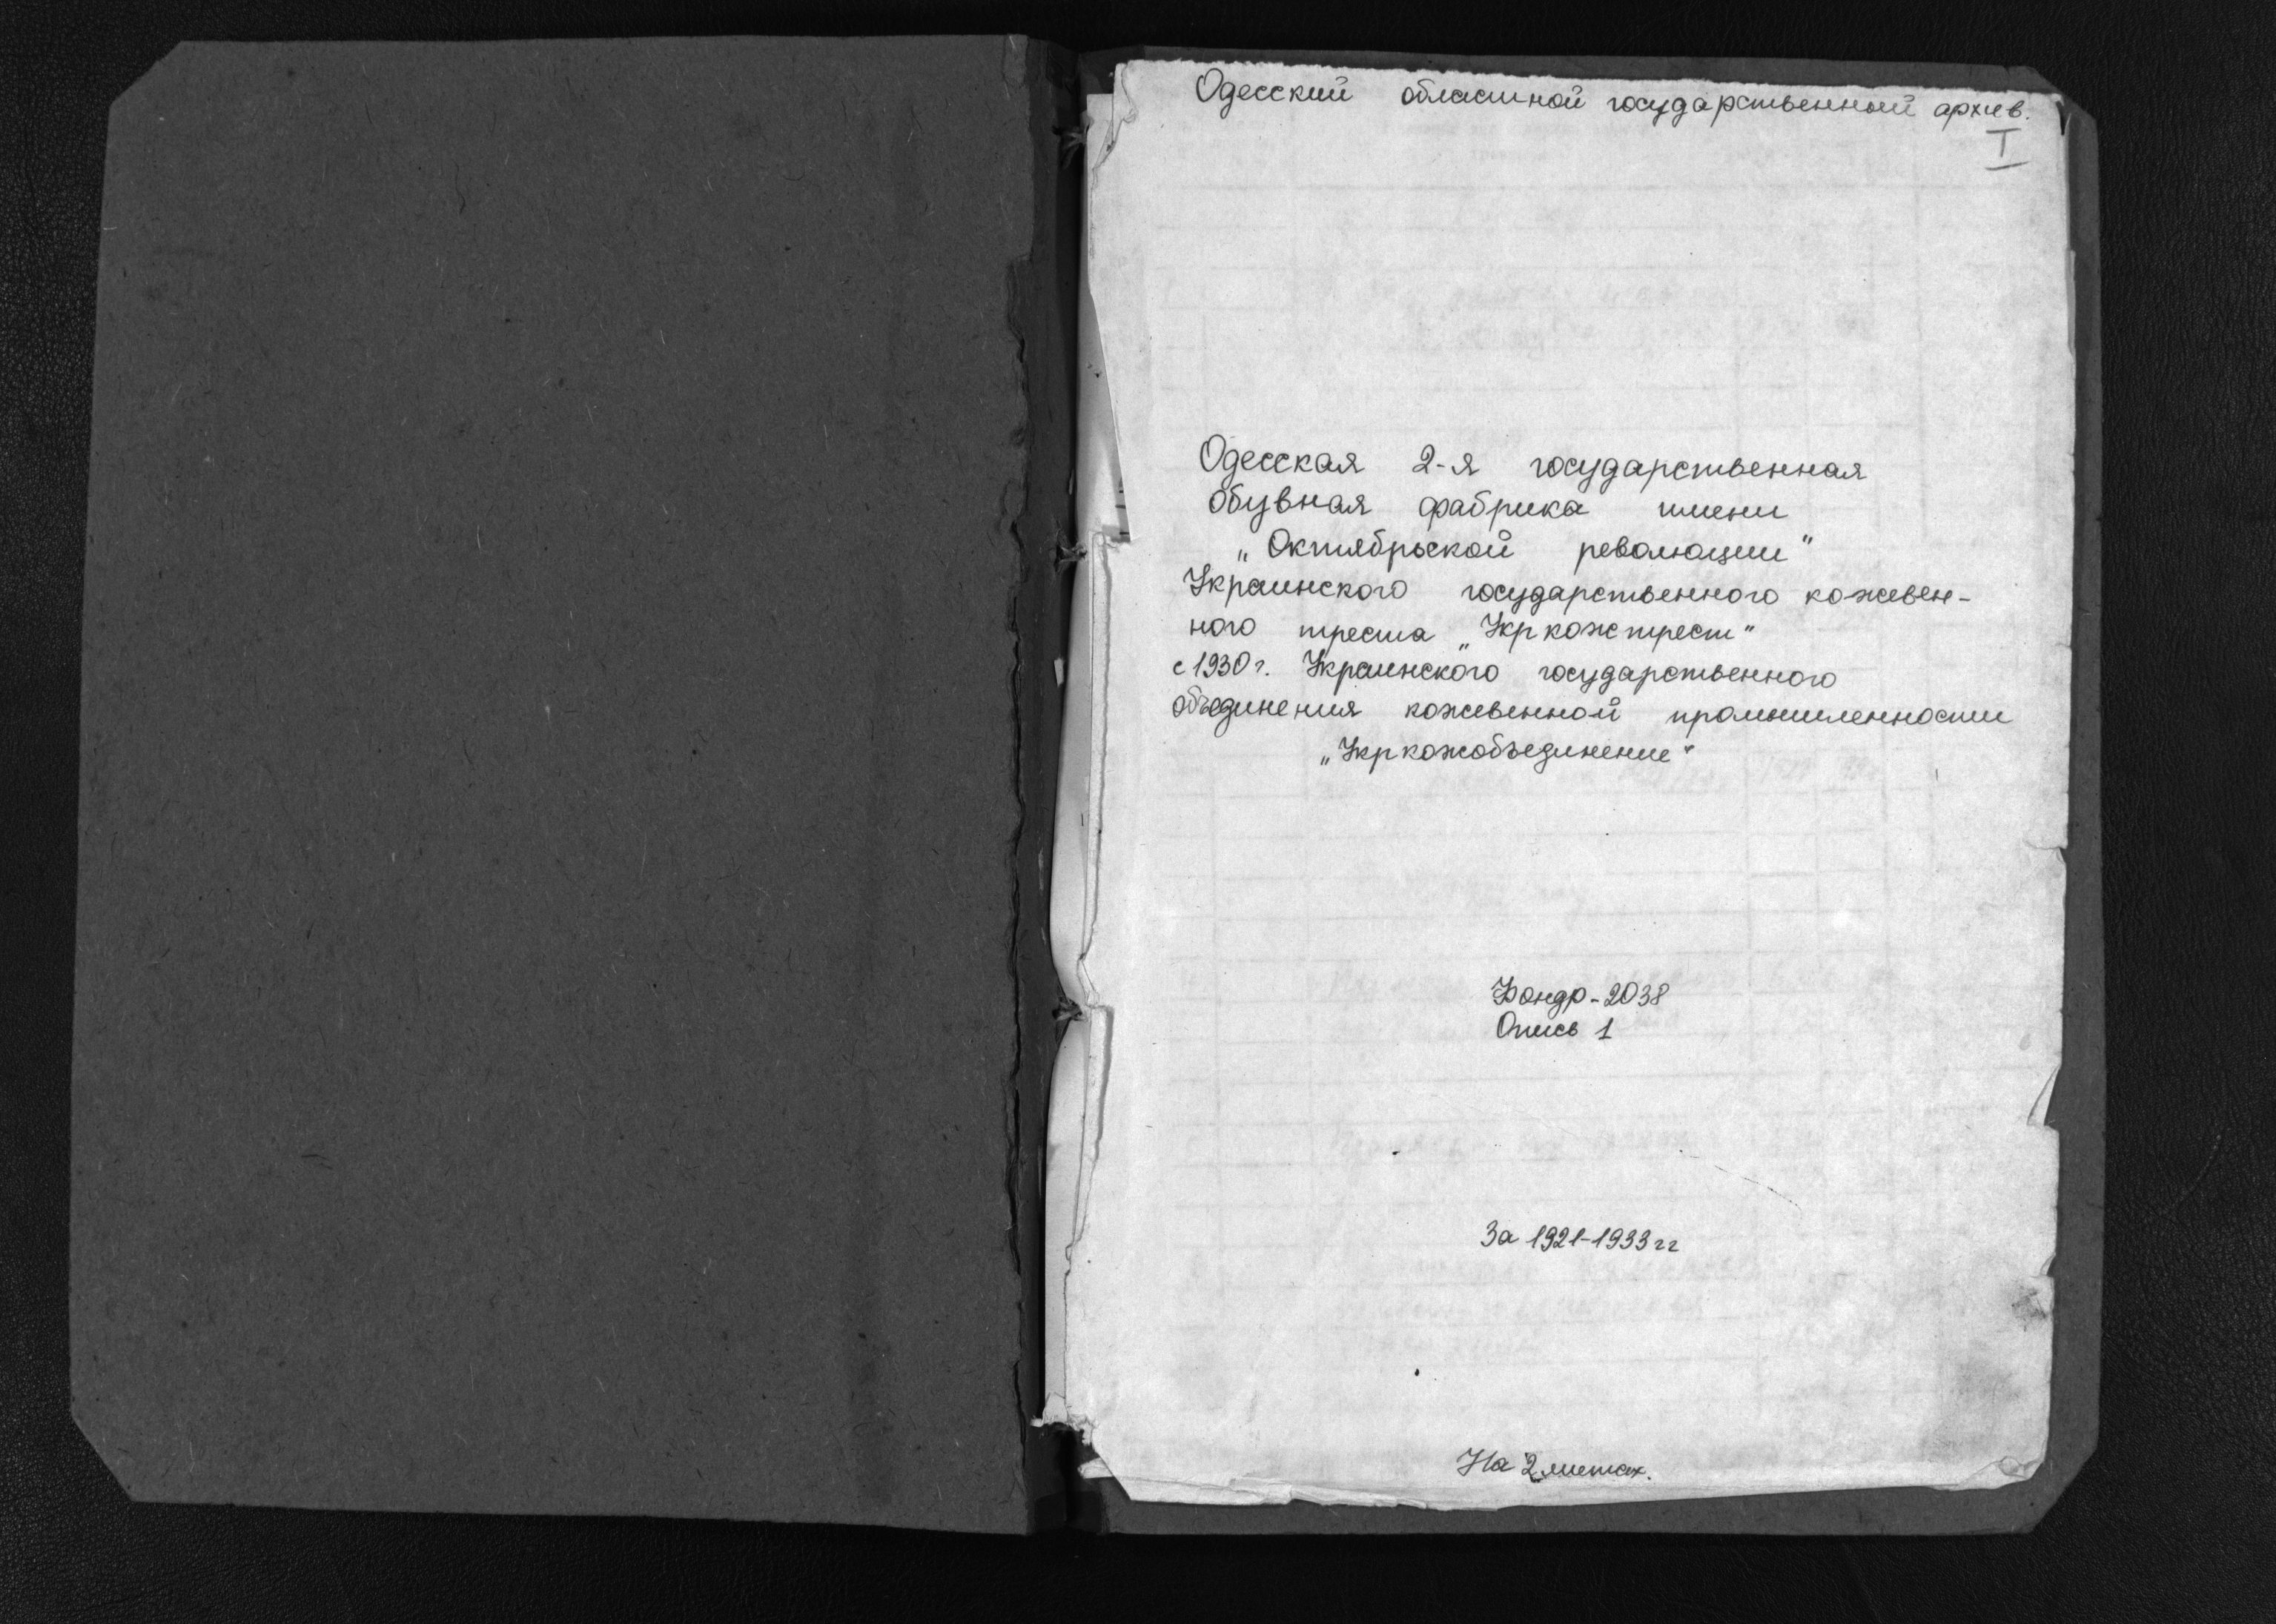 Одесский областной государственный архив.
I
Одесская 2-я государственная
обувная фабрика имени
„Октябрьской революции"
Украинского государственного кожевен-
ного треста „Укркожтрест"
с 1930 г. Украинского государственного
объединения кожевенной промышленности
„Укркожобъединение"
Фонд р-2038
Опись 1
За 1921-1933 гг
На 2 листах.